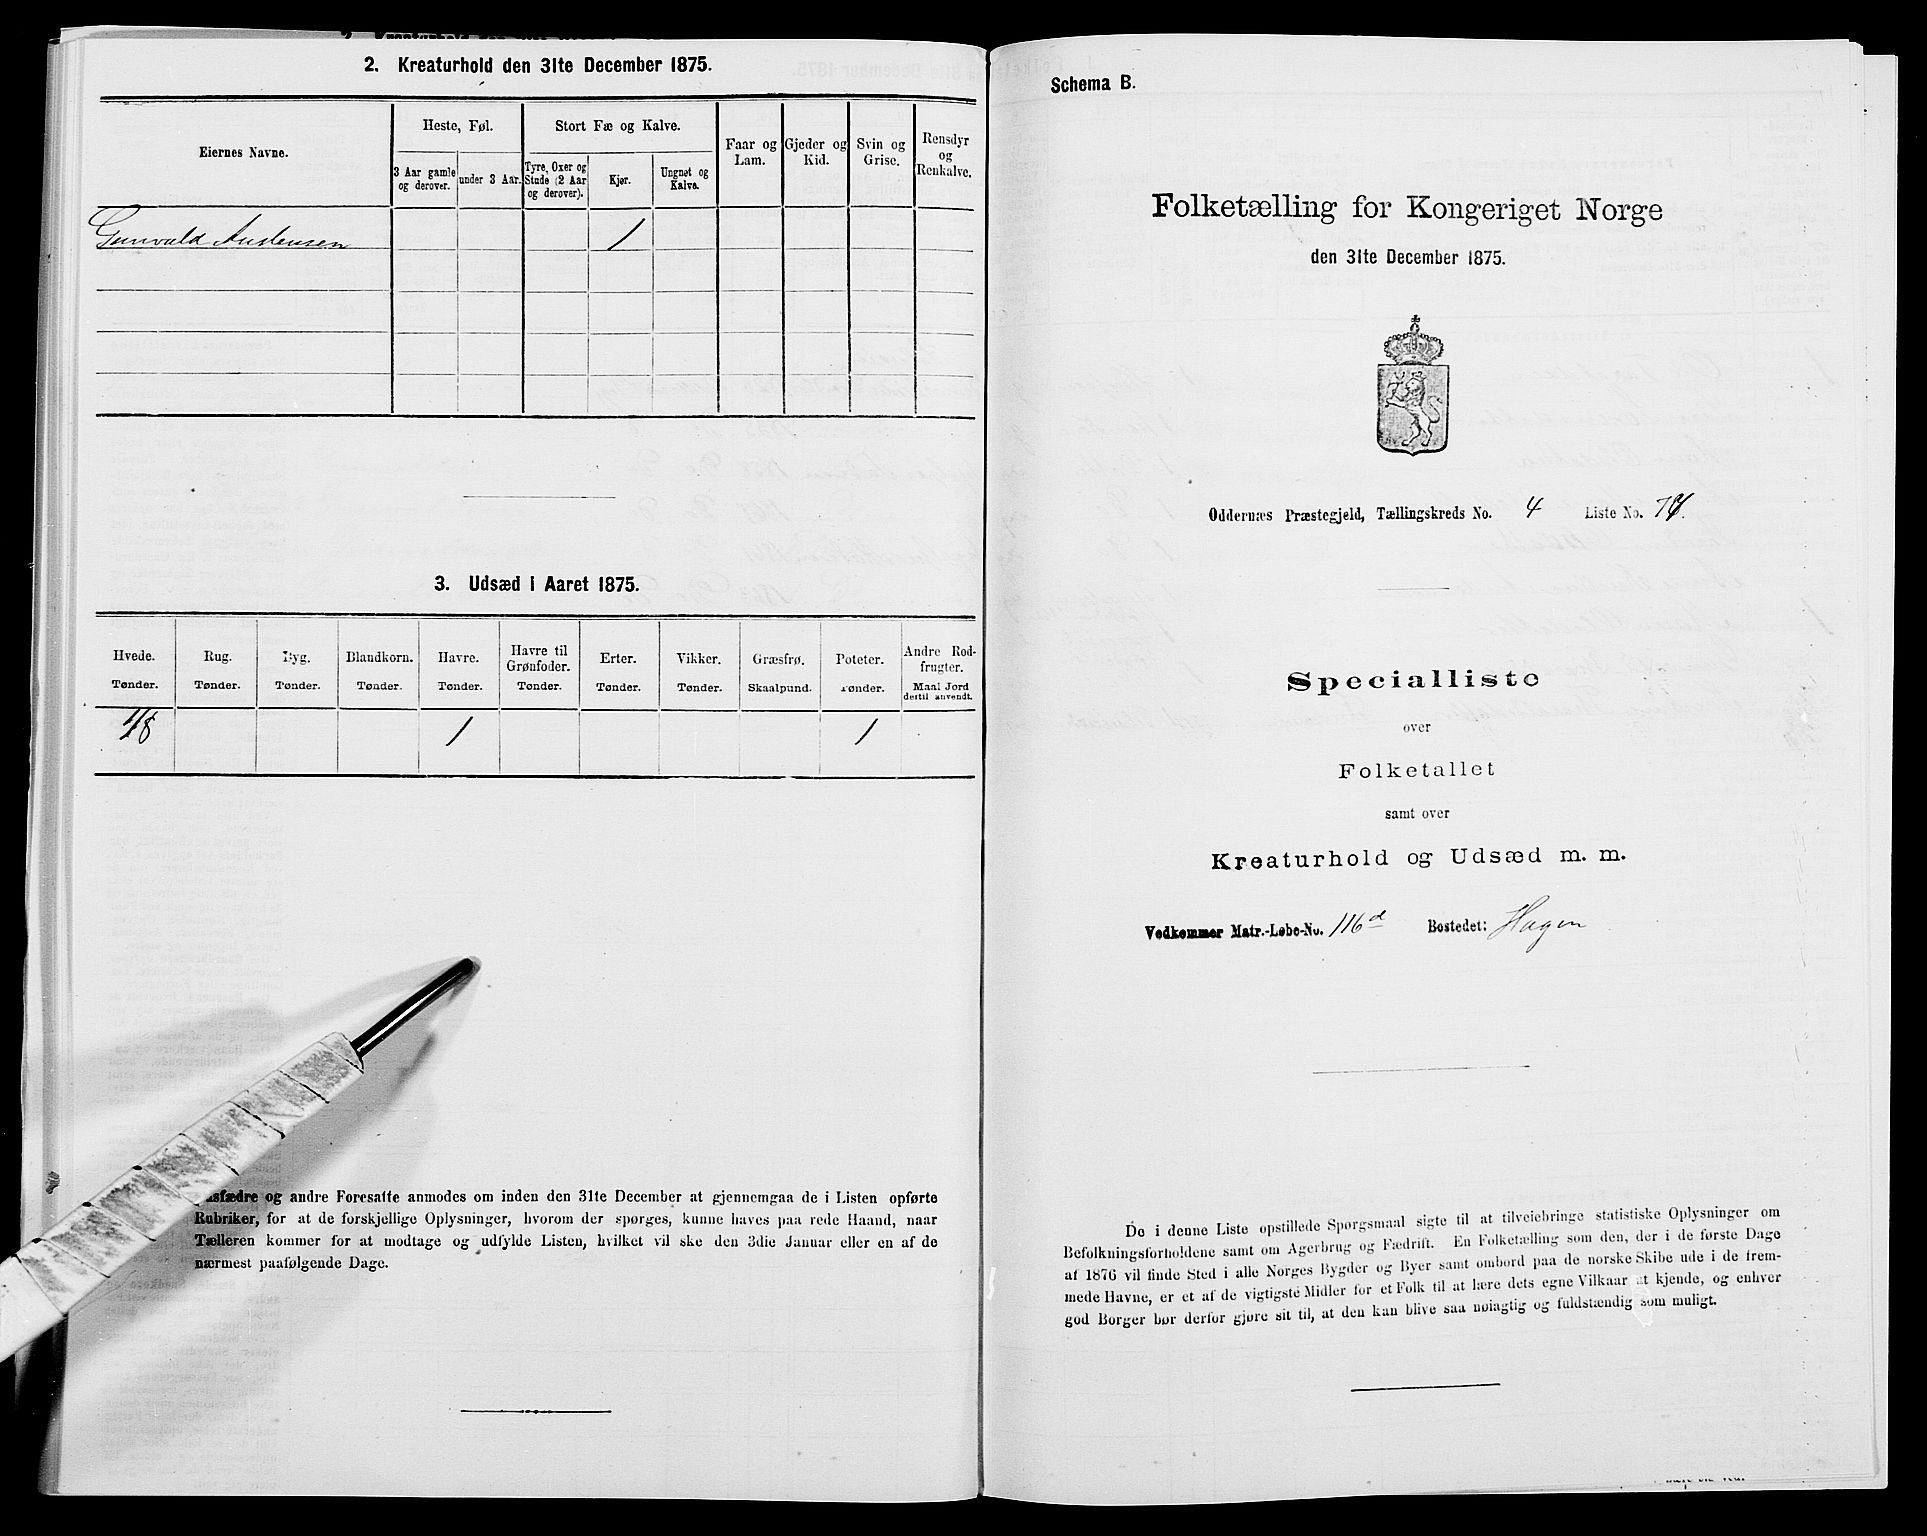 2. Kreaturhold den 31te December 1875.
Eiernes Navne.
Heste, Føl.
Stort Fæ og Kalve.
Faar og Lam.
Gjeder og Kid.
Svin og Grise.
Rensdyr og Renkalve.
3 Aar gamle og derover.
under 3 Aar.
Tyre, Oxer og Stude (2 Aar og derover).
Kjør.
Ungnøt og Kalve.
Gunvald Austensen 1
3. Udsæd i Aaret 1875.
Hvede. Rug. Byg. Blandkorn. Havre. Havre til Grønfoder. Erter. Vikker. Græsfrø. Poteter. Andre Rodfrugter.
Tønder. Tønder. Tønder. Tønder. Tønder. Tønder. Tønder. Tønder. Skaalpund. Tønder. Maal Jord dertil anvendt.
1/8 1 1
Husfædre og andre Foresatte anmodes om inden den 31te December at gjennemgaa de i Listen opførte
Rubriker, for at de forskjellige Oplysninger, hvorom der spørges, kunne haves paa rede Haand, naar
Tælleren kommer for at modtage og udfylde Listen, hvilket vil ske den 3die Januar eller en af de
nærmest paafølgende Dage.
Schema B.
Folketælling for Kongeriget Norge
den 31te December 1875.
Oddernæs Præstegjeld, Tællingskreds No. 4 Liste No.
Specialliste
over
Folketallet
samt over
Kreaturhold og Udsæd m. m.
Vedkommer Matr.-Løbe-No. 116d Bostedet: Hagen
De i denne Liste opstillede Spørgsmaal sigte til at tilveiebringe statistiske Oplysninger om
Befolkningsforholdene samt om Agerbrug og Fædrift. En Folketælling som den, der i de første Dage
af 1876 vil finde Sted i alle Norges Bygder og Byer samt ombord paa de norske Skibe ude i de frem-
mede Havne, er et af de vigtigste Midler for et Folk til at lære dets egne Vilkaar at kjende, og enhver
god Borger bør derfor gjøre sit til, at den kan blive saa nøiagtig og fuldstændig som muligt.